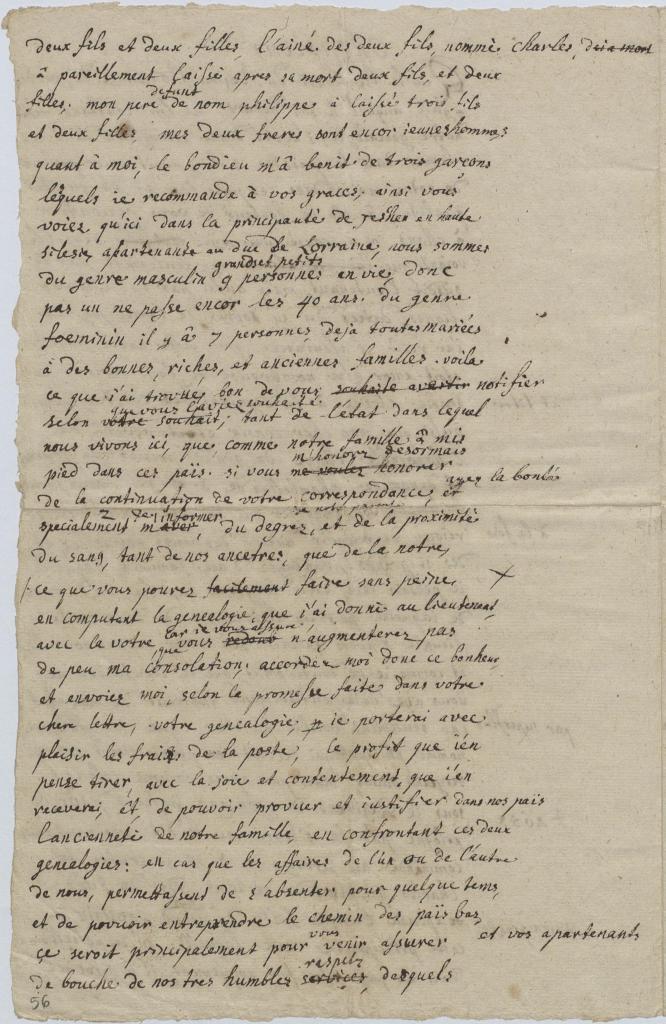 deux fils et deux filles, l'ainé des deux fils, nommé charles, deia mort
â pareillement laissé apres sa mort deux fils, et deux
defunt
filles. mon pere de nom philippe à laissé trois fils
et deux filles, mes deux freres sont encor ieunes hommes
quant à moi, le bondieu m'â benit de trois garçons
lesquels ie recommande à vos graces; ainsi vous
voiez qu'ici dans la principauté de Teshen en haute
silesie, apartenante au duc de Lorraine, nous sommes
grands et petits
du genre masculin 9 personnes en vie, donc
pas un ne passe encor les 40 ans. du genre
foeminin il y â 7 personnes, deja toutes mariées
à des bonnes, riches, et anciennes familles. voila
ce que j'ai trouvé bon de vous souhaité avertir notifier
que vous l'aviez souhaité
selon votre souhait, tant de l'état dans lequel
nous vivons ici, que comme notre famille â mis
m'honorez desormais
pied dans ces païs. si vous me voulez honorer
ayez la bonté
de la continuation de votre correspondance, et
de m'informer
specialement m'aver, du degrez, et de la proximité
du sang, tant de nos ancetres, que de la notre,
ce que vous pourez facilement faire sans peine,
en computant la genealogie, que j'ai donné au lieutenant,
car ie vous assure
avec la votre que vous n'augmenterez pas
de peu ma consolation; accordez moi donc ce bonheur,
et envoiez moi, selon la promesse faite dans votre
chere lettre, votre genealogie, ie porterai avec
plaisir les frais de la poste, le profit que i'en
pense tirer, avec la joie et contentement, que i'en
receverai, et, de pouvoir prouver et iustifier dans nos païs
l'ancienneté de notre famille, en confrontant ces deux
genealogies: en cas que les affaires de l'un ou de l'autre
de nous, permettassent de s'absenter pour quelque tems,
et de pouvoir entreprendre le chemin des païs bas,
vous
ce seroit principalement pour venir assurer et vos apartenants
respets
de bouche de nos tres humbles services, desquels
56